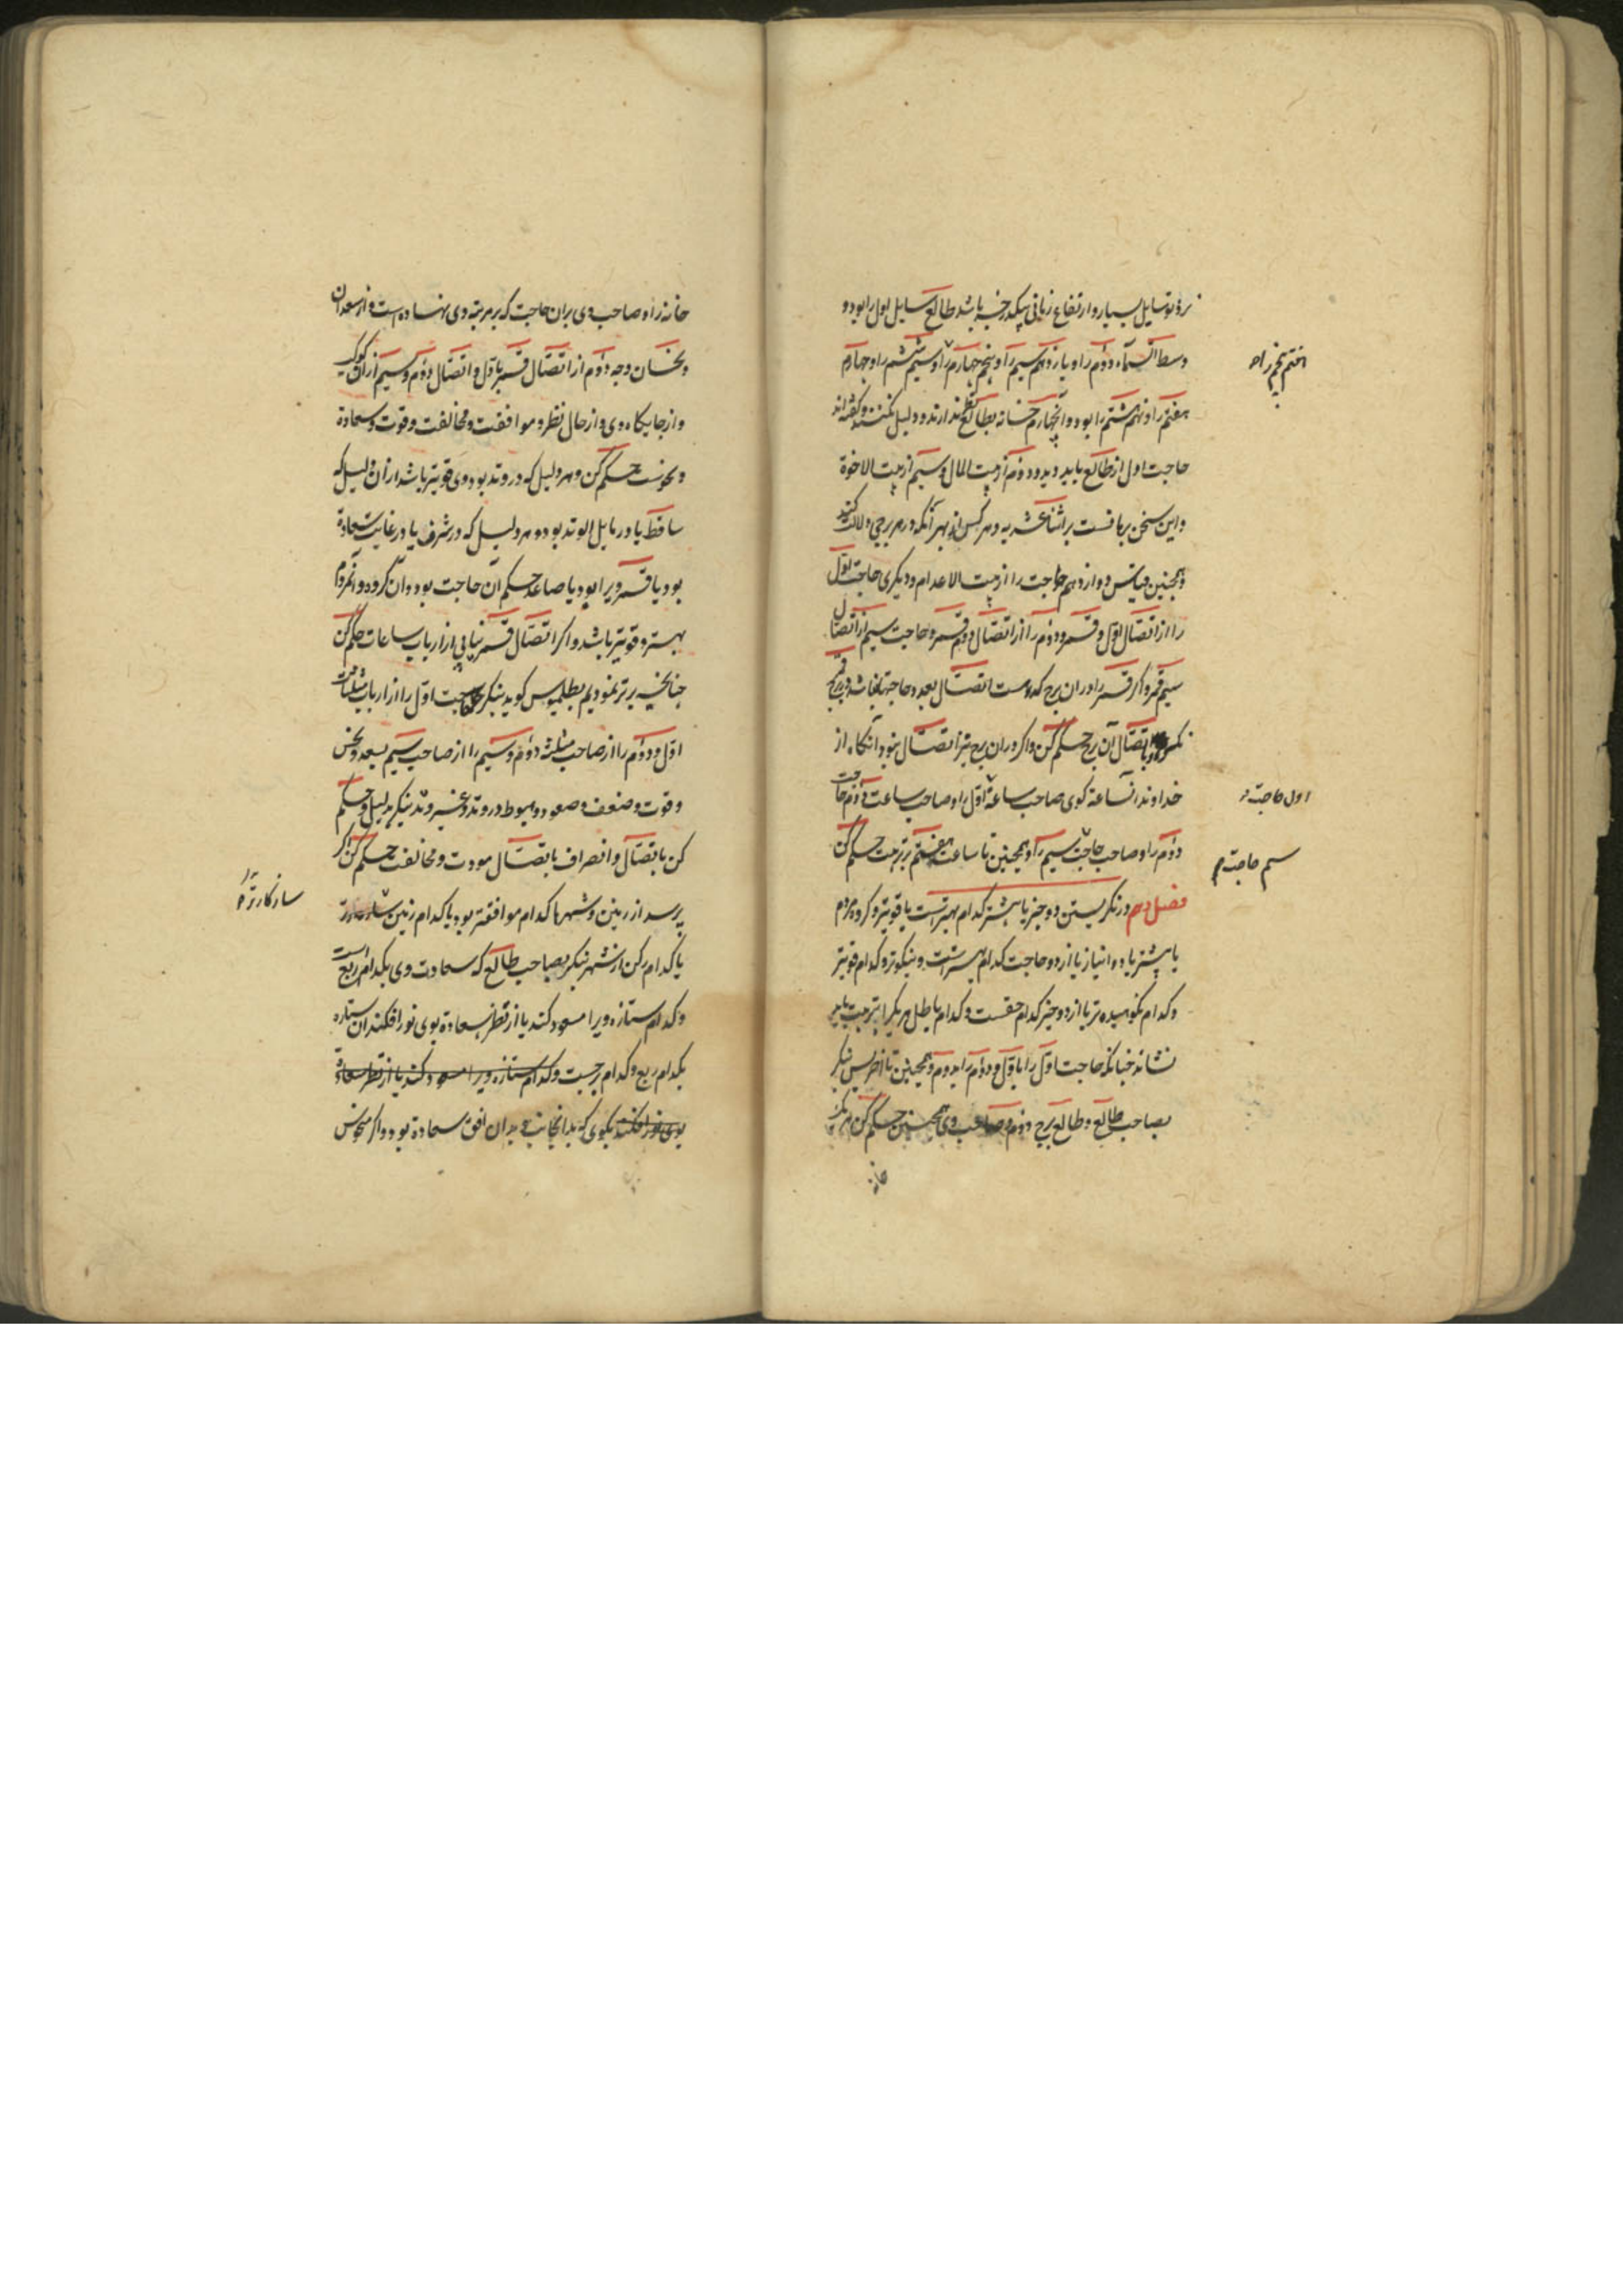 نزد تو سایل بسیار و ارتفاع زمانی بیکدرجه باشد طالع سایل اول را بود و
وسط السماء دوم را و یازدهم سیم را و پنجم چهارم را و سیم ششم را و چهارم
هفتم را و نهم هشتم را بود و آنچهارم خانه بطالع نظر ندارند و دلیل نکنند و گفته اند
حاجت اول از طالع باید دید و دوم از بیت المال و سیم از بیت الاخوة
و این سخن بر اثناعشریه و هر کس از بهر آنکه در هر برجی دلالت کند
و همچنین قیاس دوازدهم حاجت را از بیت الاعدا و دیگری حاجت اول
را از اتصال اول قمر و دوم را از اتصال دوم قمر و حاجت سیم از اتصال
سیم قمر و اگر قمر را در ان برج که هست اتصال بعد و حاجتها نباشد
باتصال آن برج حکم کن و اگر در ان برج نیز اتصال نبود آنگاه از
خداوند آنساعة گوی صاحب ساعة اول را و صاحب ساعت دوم حاجت
دوم را و صاحب حاجت سیم را و همچنین تا ساعت هفتم بر ترتیب حکم کن
فصل دهم در نگریستن دو چیز یا بیشتر کدام بهتر است یا قویتر و گروه مردم
یا بیشتر یا دو انباز یا از دو حاجت کدام بیشتر است و نیکوتر و کدام قویتر
و کدام نکوهیده تر یا از دو چیز کدام حقست و کدام باطل هر یک را بترتیب باید
نشاند چنانکه حاجت اول را باول و دوم را بدوم و همچنین تا آخر پس بنگر
بصاحب طالع و طالع برج دوم و صاحب وی همچنین حکم کن
خانه
پنجم را
اول حاجت
سیم حاجت
خانه را و صاحب وی بران حاجت که بر مرتبه وی نهاده است و از سعدان
و نحسان و جه دوم از اتصال قمر باول و اتصال دوم و سیم از ان کوکب
و از جایگاه وی و از حال نظر و موافقت و مخالفت و قوت و سعادة
و نحوست حکم کن و هر دلیل که در وتد بود وی قویتر باشد از ان دلیل که
ساقط یا در مایل الوتد بود و هر دلیل که در شرف یا در غایت سعادة
بود یا قمر ویرا بود یا صاعد حکم آن حاجت بود و ان گروه و آنمردم
بهتر و قویتر باشد و اگر اتصال قمر نیابی از ارباب ساعات حکم کن
چنانچه برتر نمودیم بطلمیوس گوید بنگر حاجت اول را از ارباب مثلثات
اول و دوم را از صاحب مثلثه دوم و سیم را از صاحب سیم بسعد و نحس
و قوت و ضعف و صعود و هبوط در وتد و غیر وتد بنگر بدلیل و حکم
کن باتصال و انصراف باتصال مودت و مخالفت حکم کن اگر
پرسد از زمین و شهرها کدام موافقتر بود یا کدام زمین
یا کدام رکن از شهر بنگر بصاحب طالع که سعادت وی بکدام ربع است
و کدام ستاره ویرا مسعود کند یا از نظر سعادة بوی نور افکند ان ستاره
بکدام ربع و کدام برجست و کدام ستاره ویرا مسعود کند یا از نظر سعادة
بوی نور افکند بگوی که بدانجانب و بدان افق سعادة بود و اگر منحوس
سازگارتر